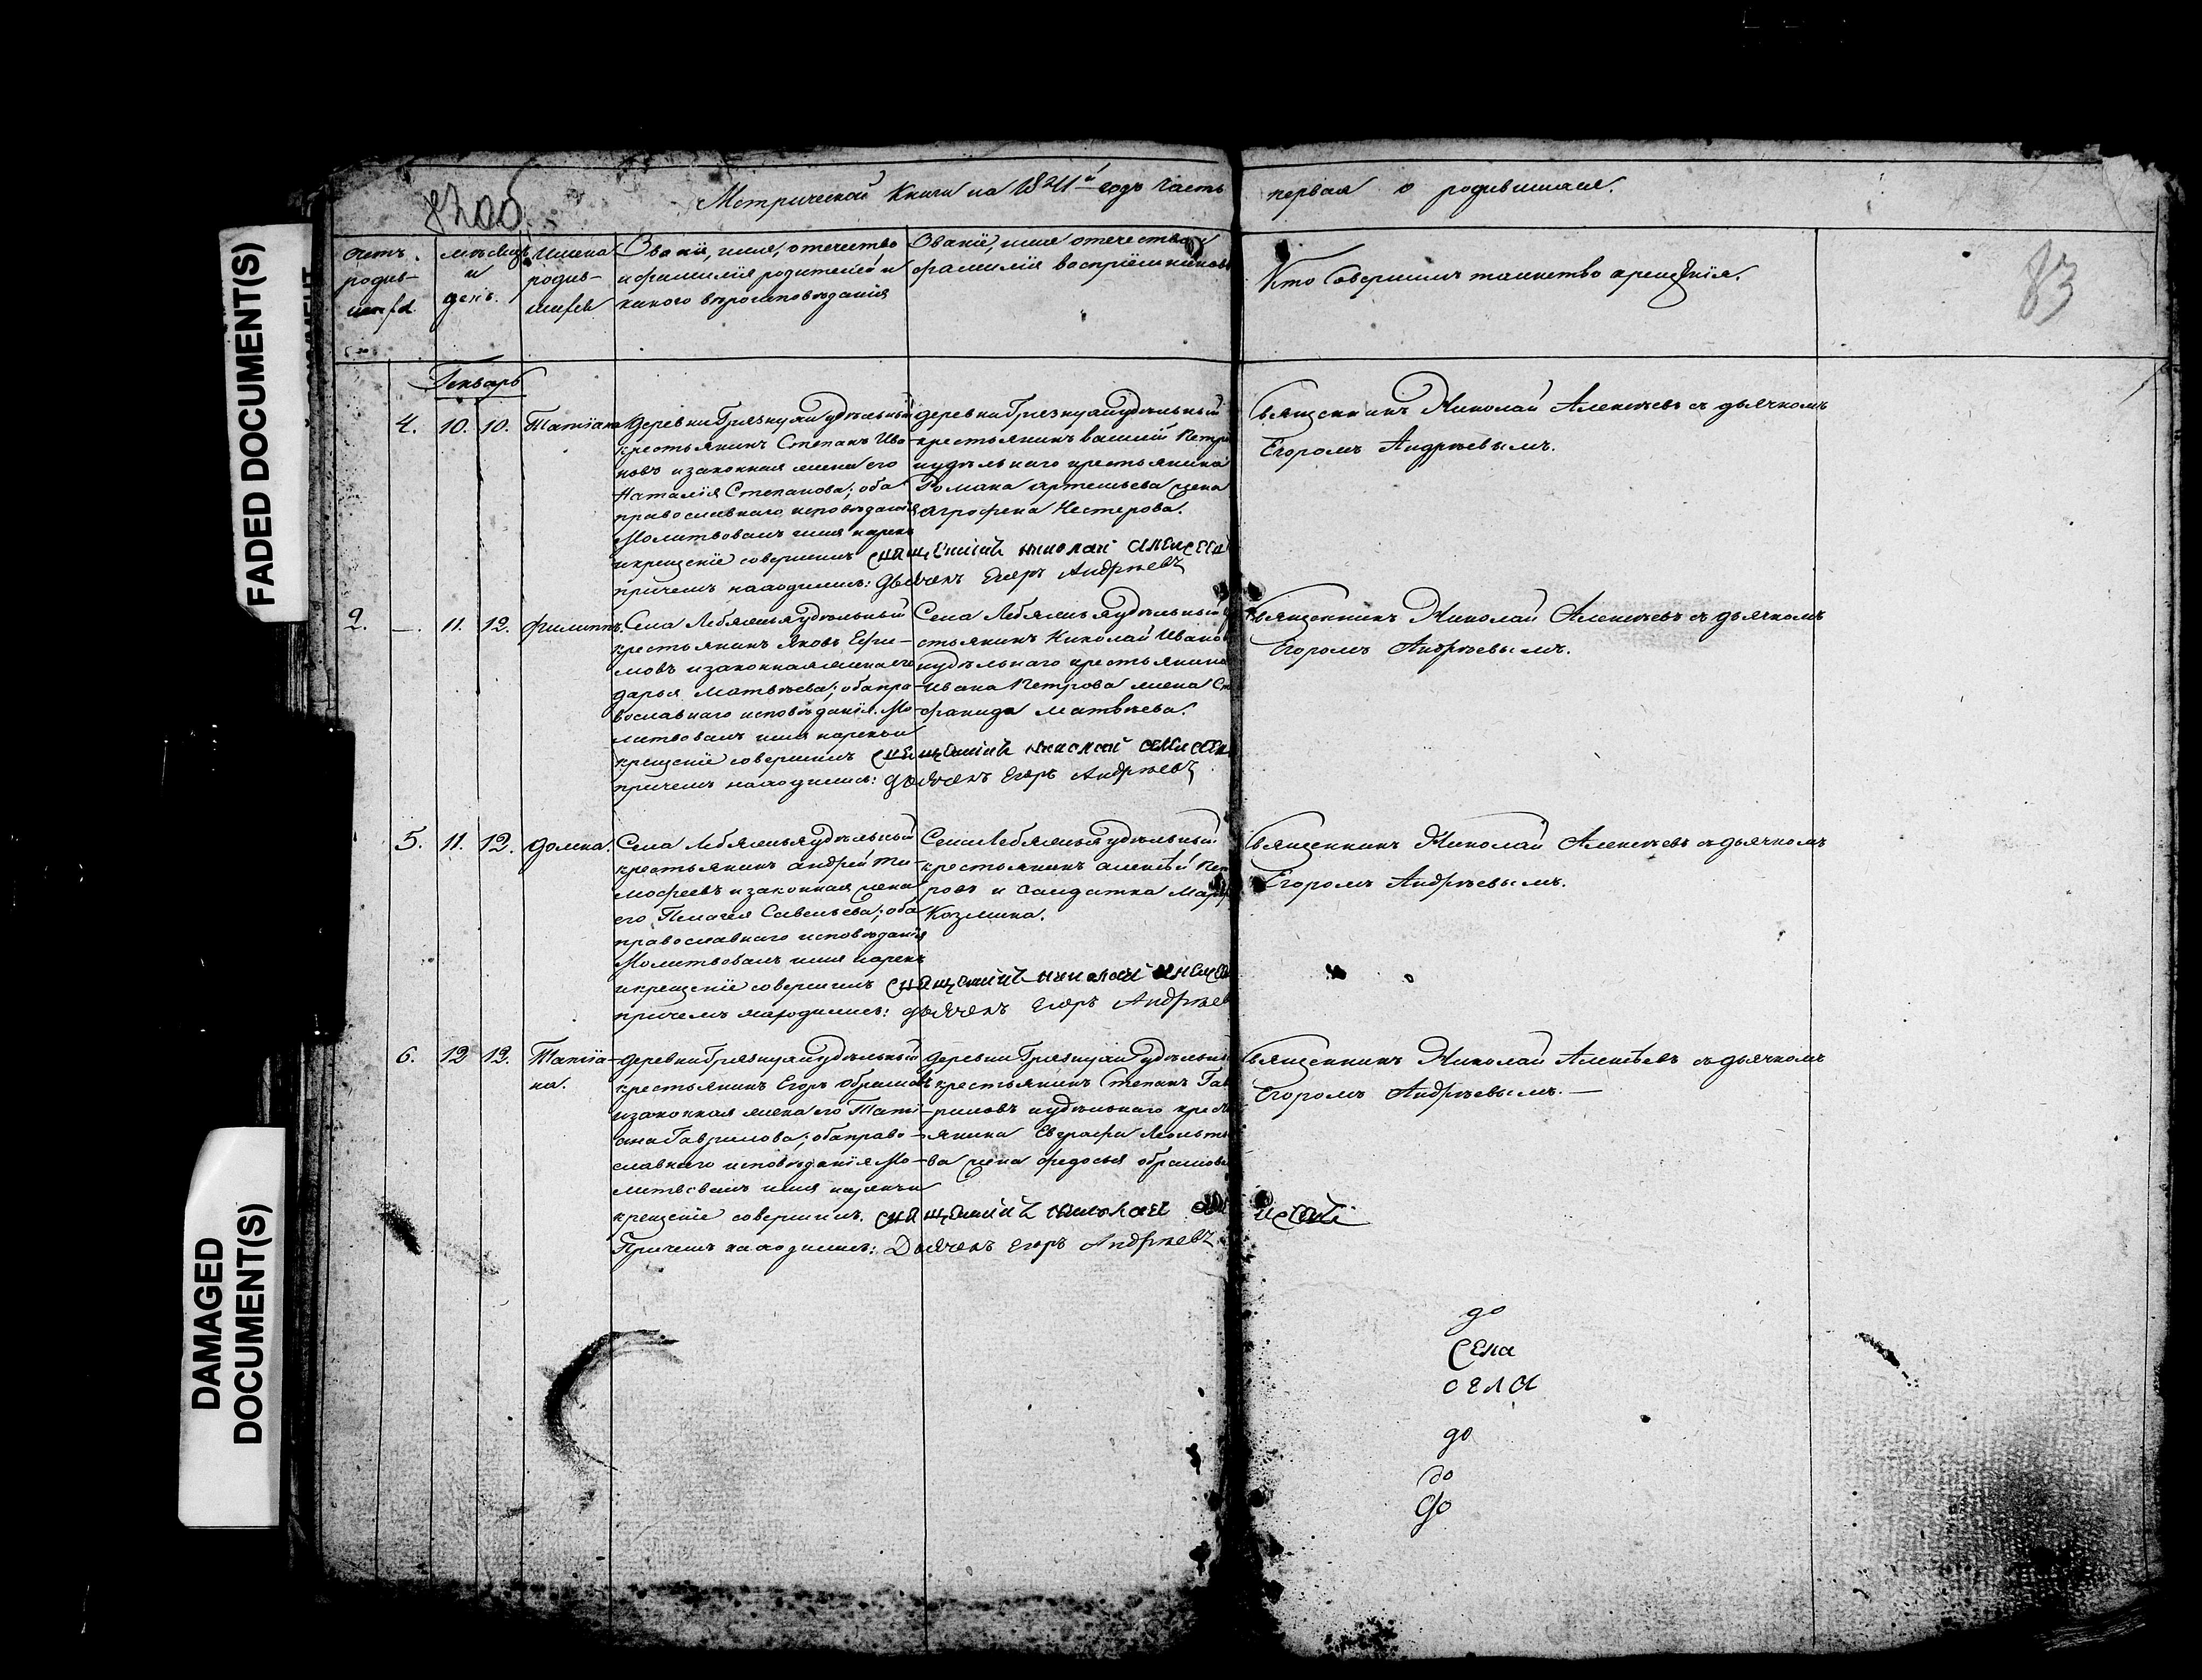 FADED DOCUMENT(S)
DAMAGED
DOCUMENT(S)
Метрической Книги на 1841й годъ Часть первая о родившихся.
83
Счетъ
родив-
шихся
мѣсяцъ
и
день.
Имена
родив-
шихся
Званіе, имя, отечество
и фамилія родителей и
какого вѣроисповѣданія
Званіе, имя отечество и
фамилія воспріемниковъ
Кто совершилъ таинство крещенія.
Генварь
4. 10. 10. Татіана
деревни Грязнухи удѣльный
крестьянинъ Степанъ Ива-
новъ и законная жена его
Наталія Степанова; оба
православнаго исповѣданія
Молитвовалъ имя нарекъ
и крещеніе совершилъ священникъ николай алексеевъ
причемъ находились: дьячекъ Егоръ Андрѣевъ
деревни Грязнухи удѣльный
крестьянинъ василій Петро
и удѣльнаго крестьянина
Романа артемьева жена
агрофена Нестерова.
Священникъ Николай Алексѣевъ съ дьячкомъ
Егоромъ Андрѣевымъ.
2. — 11. 12. филиппъ.
Села Лебяжья удѣльный
крестьянинъ Яковъ Ефи-
мовъ и законная жена его
дарья Матвѣева; оба пра-
вославнаго исповѣданія. Мо-
литвовалъ имя нарекъ и
крещеніе совершилъ священникъ николай алексеевъ
причемъ находились: дьячекъ Егоръ Андрѣевъ
Села Лебяжья удѣльный
стьянинъ Николай Ивано
и удѣльнаго крестьянина
Ивана Петрова жена Сте
фанида Матвѣева.
Священникъ Николай Алексѣевъ съ дьячкомъ
Егоромъ Андрѣевымъ.
5. 11. 12. домна.
Села Лебяжья удѣльный
крестьянинъ андрей Ти-
мофеевъ и законная жена
его Пелагея Савельева; оба
православнаго исповѣданія
Молитвовалъ имя нарекъ
и крещеніе совершилъ священникъ николай алексе
причемъ находились: дьячекъ Егоръ Андрѣев
Села Лебяжья удѣльный
крестьянинъ алексѣй Пет
ровъ и солдатка Мар
Козмина.
Священникъ Николай Алексѣевъ съ дьячкомъ
Егоромъ Андрѣевымъ.
6. 12 12. Татіа-
на.
деревни Грязнухи удѣльный
крестьянинъ Егоръ Абрамовъ
и законная жена его Тати-
ана Гаврилова; оба право-
славнаго исповѣданія Мо-
литвовалъ имя нарекъ и
крещеніе совершилъ. священникъ николай алексеевъ
Причемъ находились: Дьячекъ Егоръ Андрѣевъ
деревни Грязнухи удѣльны
крестьянинъ Степанъ Гав
риловъ и удѣльнаго кресть
янина Евграфа Леонтье
ва жена федосья абрамова
Священникъ Николай Алексѣевъ съ дьячкомъ
Егоромъ Андрѣевымъ. —
до
Села
села
до
до
До